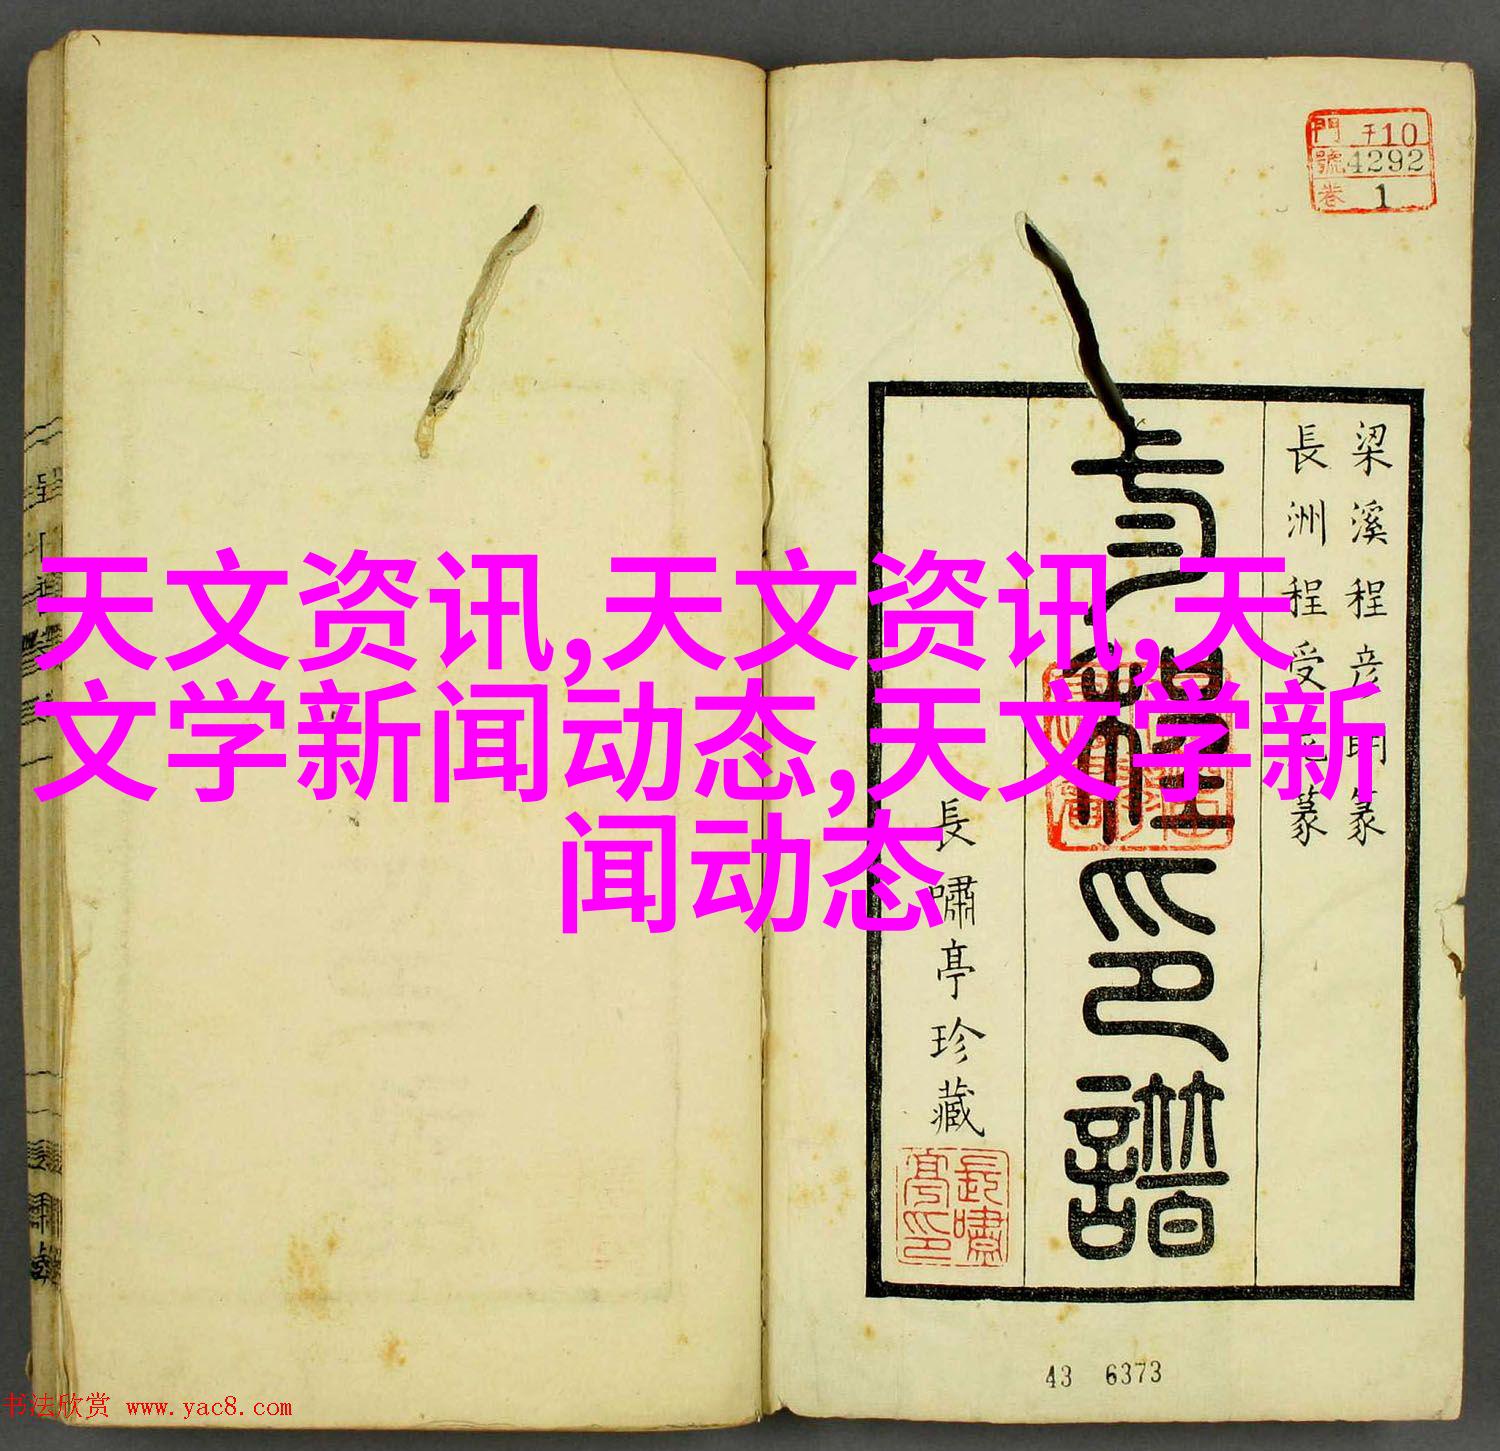 門 于10
號 4292
卷 1
梁溪程彦明篆
長洲程受尼篆
程印譜
長嘯亭珍藏
長嘯亭印
天文资讯,天文资讯,天
文学新闻动态,天文学新
闻动态
43 6373
书法欣赏 www.yac8.com